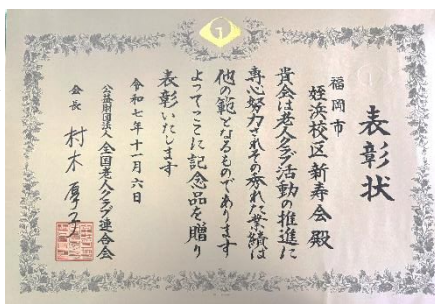 表彰状
福岡市
姪浜校区新寿会殿
貴会は老人クラブ活動の推進に
専心努力されその秀れた業績は
他の範となるものであります
よってここに記念品を贈り
表彰いたします
令和七年十一月六日
公益財団法人 全国老人クラブ連合会
会長 村木厚子